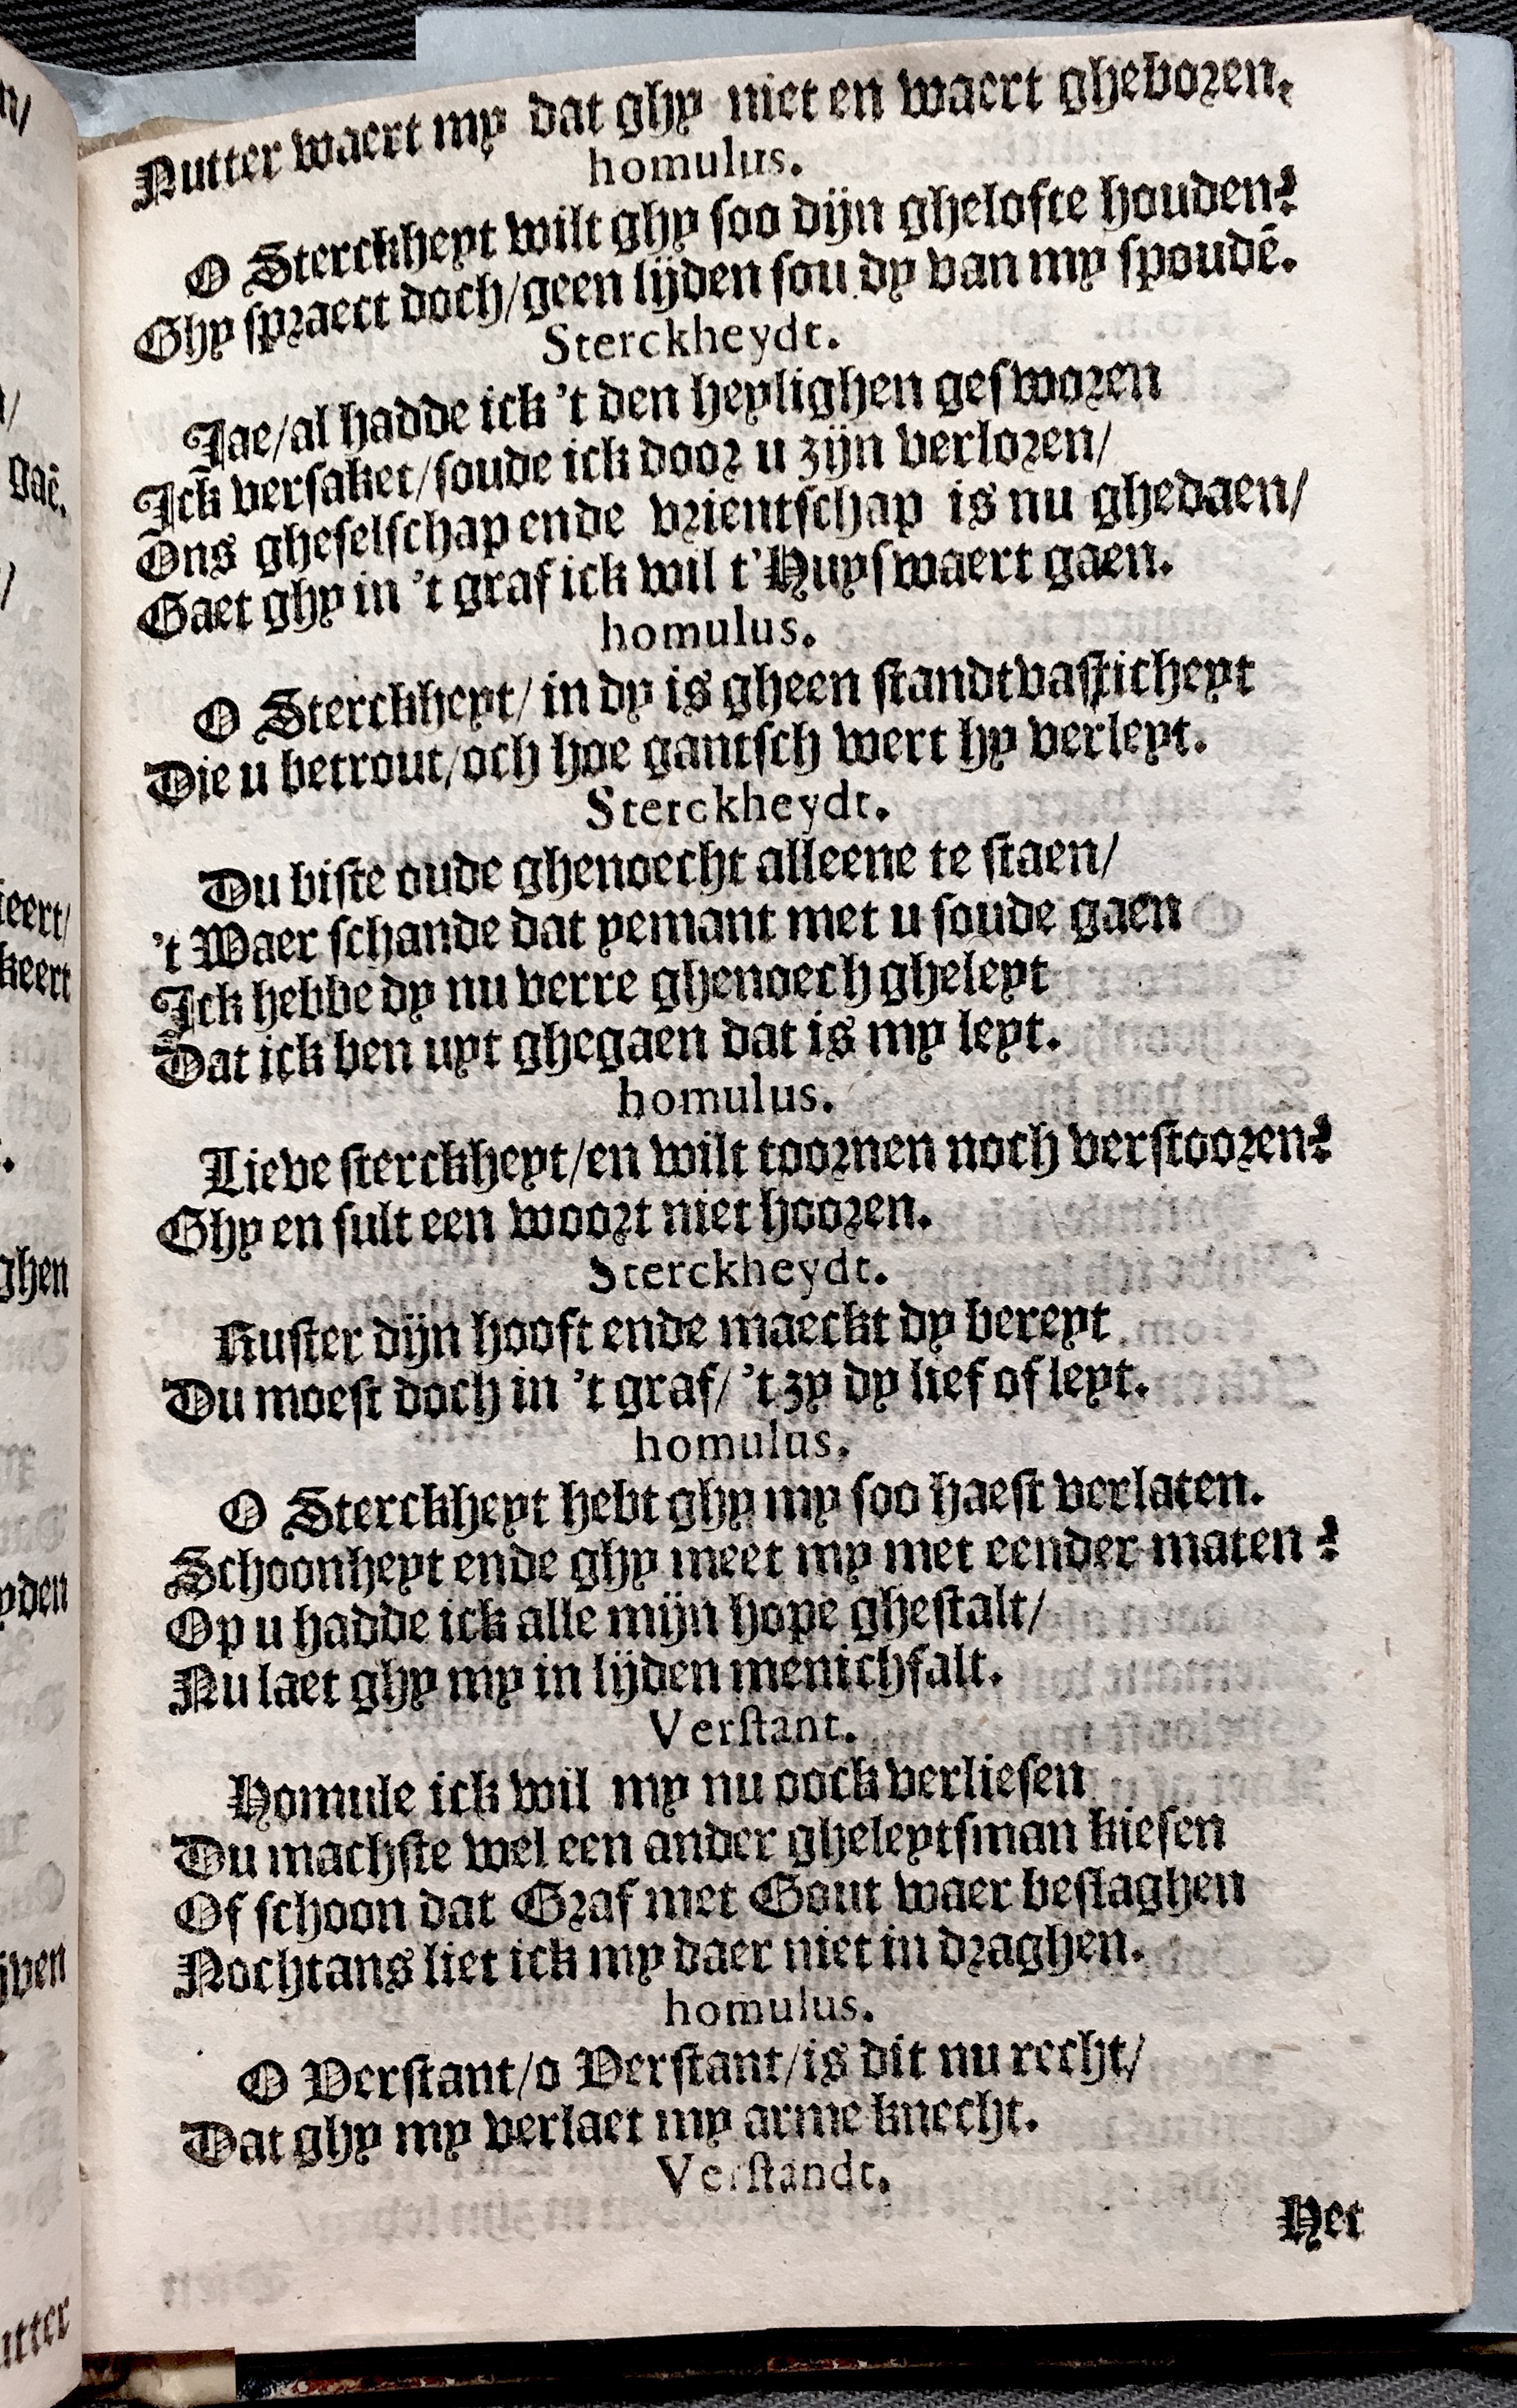 Nutter waert my dat ghy niet en waert gheboren.
homulus.
O Sterckheyt wilt ghy soo dijn ghelofte houden?
Ghy spraect doch/geen lijden sou dy van my spoudē.
Sterckheydt.
Jae/al hadde ick 't den heylighen gesworen
Ick versaket/soude ick door u zijn verloren/
Ons gheselschap ende vrientschap is nu ghedaen/
Gaet ghy in 't graf ick wil t'Huyswaert gaen.
homulus.
O Sterckheyt/ in dy is gheen standtvasticheyt
Die u betrout/och hoe gantsch wert hy verleyt.
Sterckheydt.
Du biste oude ghenoecht alleene te staen/
't Waer schande dat yemant met u soude gaen
Ick hebbe dy nu verre ghenoech gheleyt
Dat ick ben uyt ghegaen dat is my leyt.
homulus.
Lieve sterckheyt/en wilt toornen noch verstooren?
Ghy en sult een woort niet hooren.
Sterckheydt.
Kuster dijn hooft ende maeckt dy bereyt
Du moest doch in 't graf/ 't zy dy lief of leyt.
homulus.
O Sterckheyt hebt ghy my soo haest verlaten.
Schoonheyt ende ghy meet my met eender maten?
Op u hadde ick alle mijn hope ghestalt/
Nu laet ghy my in lijden menichfalt.
Verstant.
Homule ick wil my nu oock verliesen
Du machste wel een ander gheleytsman kiesen
Of schoon dat Graf met Gout waer beslaghen
Nochtans liet ick my daer niet in draghen.
homulus.
O Verstant/o Verstant/is dit nu recht/
Dat ghy my verlaet my arme knecht.
Verstandt.
Het